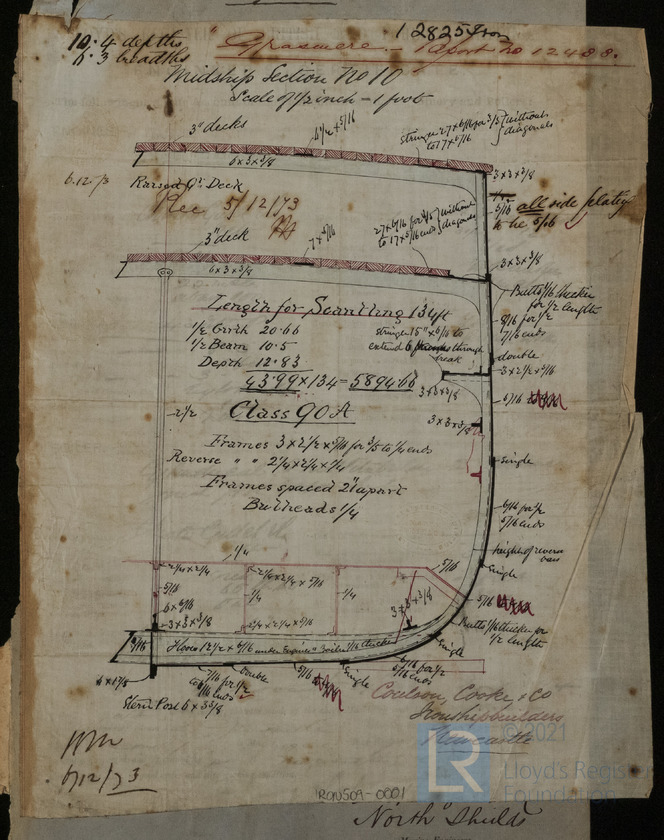 12825 Iron
10.4 depths
6.3 breadths
"Grasmere" - Report no 12488.
Midship Section No 10
Scale of 1/2 inch = 1 foot
3" decks
stringer 27 x 6/16 for 3/5 without
to 17 x 6/16 diagonals
6 x 3 x 3/8
3 x 3 x 3/8
6.12.73
Raised Qr Deck
Rec 5/12/73
5/16 all side plating
to be 5/16
3" deck
7 x 6/16
27 x 6/16 for 3/5 without
to 17 x 5/16 ends diagonals
6 x 3 x 3/8
3 x 3 x 3/8
Length for Scantling 134 ft
Butts 1/16 thicker
for 1/2 length
1/2 Girth 20.66
1/2 Beam 10.5
Depth 12.83
43.99 x 134 = 5894.66
stringer 15" x 6/16 to
extend 6 frames through
break
8/16 for 1/2
7/16 ends
double
3 x 2 1/2 x 5/16
3 x 3 x 3/8
Class 90 A
2 1/2
3 x 3 x 3/8
Frames 3 x 2 1/2 x 5/16 for 3/5 to 1/4 ends
Reverse " " 2 1/4 x 2 1/4 x 1/4
Frames spaced 21" apart
Bulheads 1/4
single
6/16 for 1/2
5/16 ends
height of reverse
bars
1/4
5/16
single
2 1/4 x 2 1/4
2 1/4 x 2 1/4 x 5/16
5/16
1/4
1/4
6 x 6/16
3 x 3 x 3/8
3 x 3 x 3/8
2 1/4 x 2 1/4 x 5/16
5/16
Butts 1/16 thicker for
1/2 length
9/16
Floors 12 1/2 x 5/16 under Engines & Boilers 1/16 thicker
single
6 x 1 7/8
7/16 for 1/2
to 6/16 ends
double
5/16
single
6/16 for 1/2
5/16 ends
Stern Post 6 x 3 3/8
Coulson, Cooke & Co
Ironshipbuilders
Newcastle
6/12/73
© 2021
LR
Lloyd's Register
Foundation
RON509-0001
"North" Shields